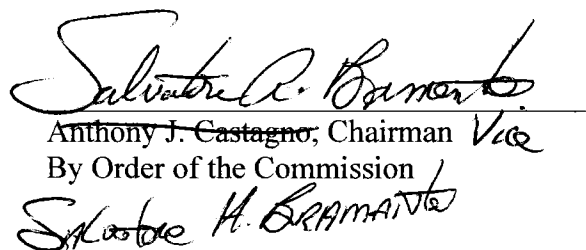 Salvatore A. Bramante
Anthony J. Castagno, Chairman Vice
By Order of the Commission
SALVATORE A. BRAMANTE